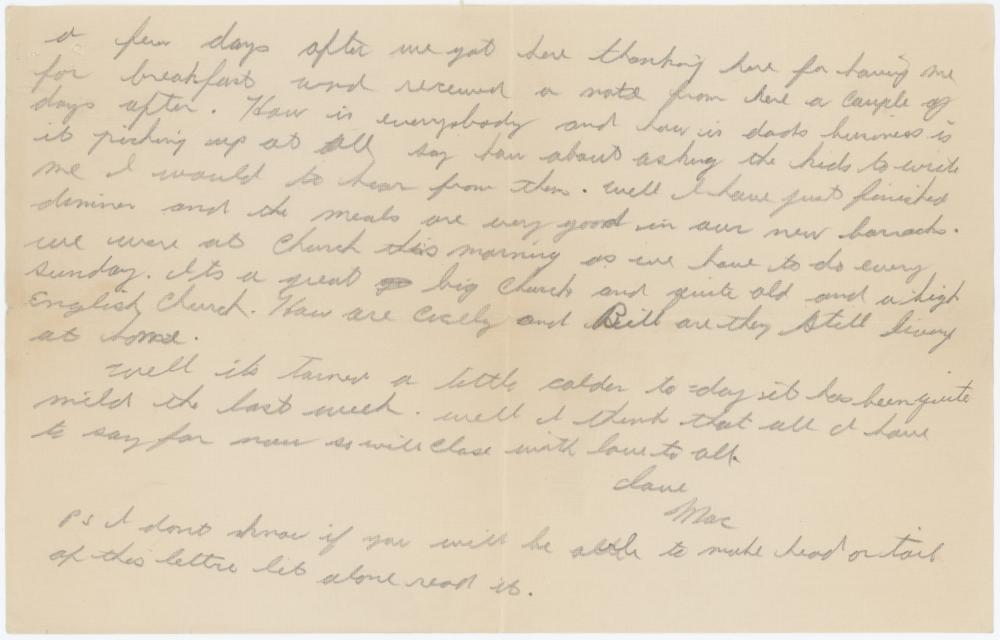 a few days after we got here thanking here for having me
for breakfast and received a note from here a couple of
days after. How is everybody and how is dads business is
it picking up at all, say how about asking the kids to write
me I would to hear from them. Well I have just finished
dinner and the meals are very good in our new barracks.
we were at Church this morning as we have to do every
Sunday. Its a great big Church and quite old and a high
English Church. How are and Bill are they still living
at home.
Well its turned a little colder to-day it has been quite
mild the last week. well I think that all I have
to say for now so will close with love to all.
Love
Mac
PS I dont know if you will be able to make head or tail
of this lettre let alone read it.